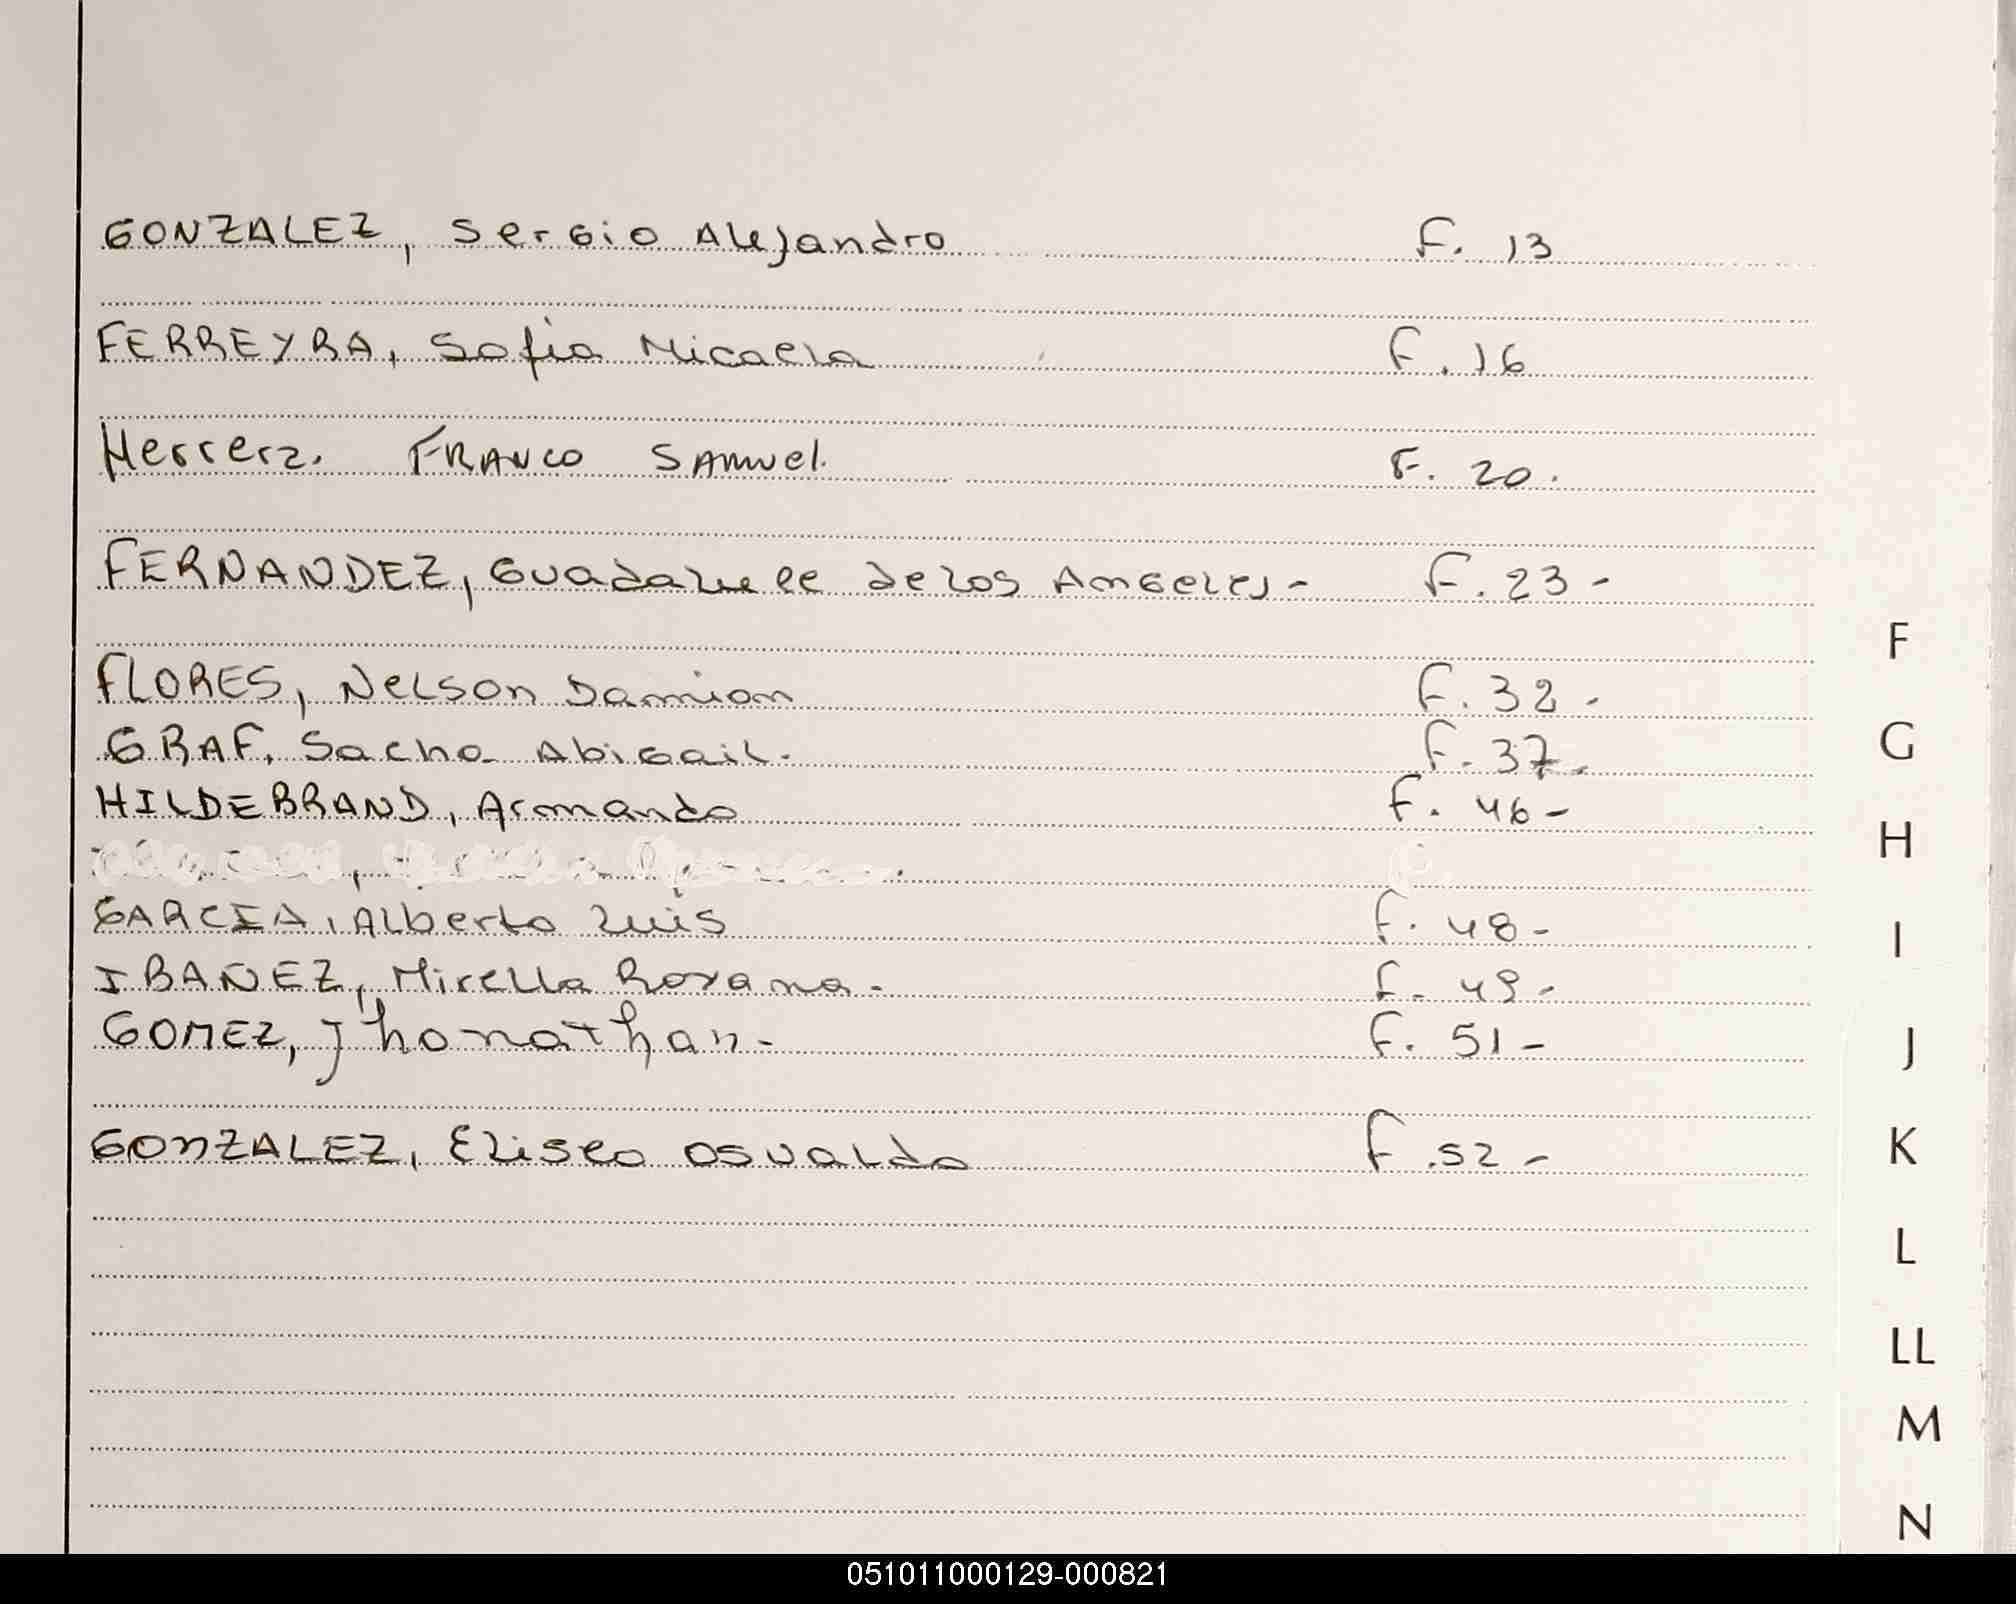 GONZALEZ, Sergio Alejandro F. 13
FERREYRA, Sofia Micaela F. 16
Herrera. FRANCO SAMUEL. F. 20.
FERNANDEZ, Guadalupe de los Angeles - F. 23 -
FLORES, Nelson Damian F. 32 -
GRAF, Sacha Abigail. F. 37 -
HILDEBRAND, Armando F. 46 -
GARCIA, Alberto Luis F. 48 -
IBAÑEZ, Mirella Roxana - F. 49 -
GOMEZ, Jhonathan - F. 51 -
GONZALEZ, Eliseo Osvaldo F. 52 -
F
G
H
I
J
K
L
LL
M
N
051011000129-000821